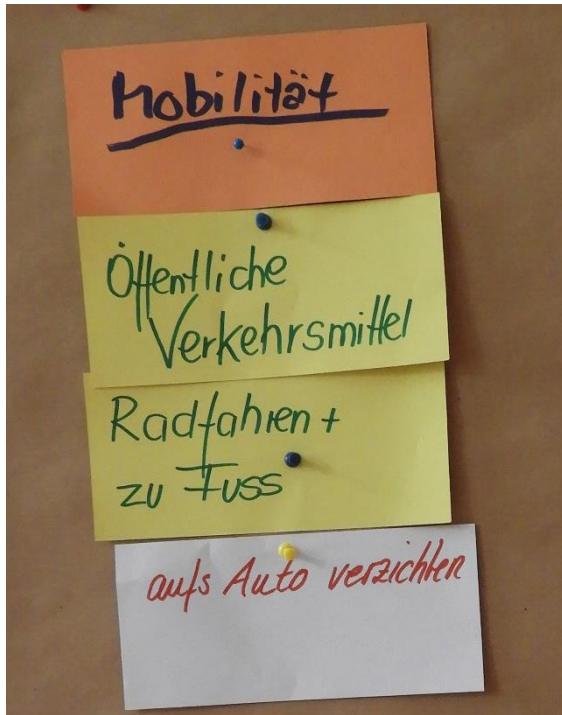 Mobilität
Öffentliche
Verkehrsmittel
Radfahren +
zu Fuss
aufs Auto verzichten